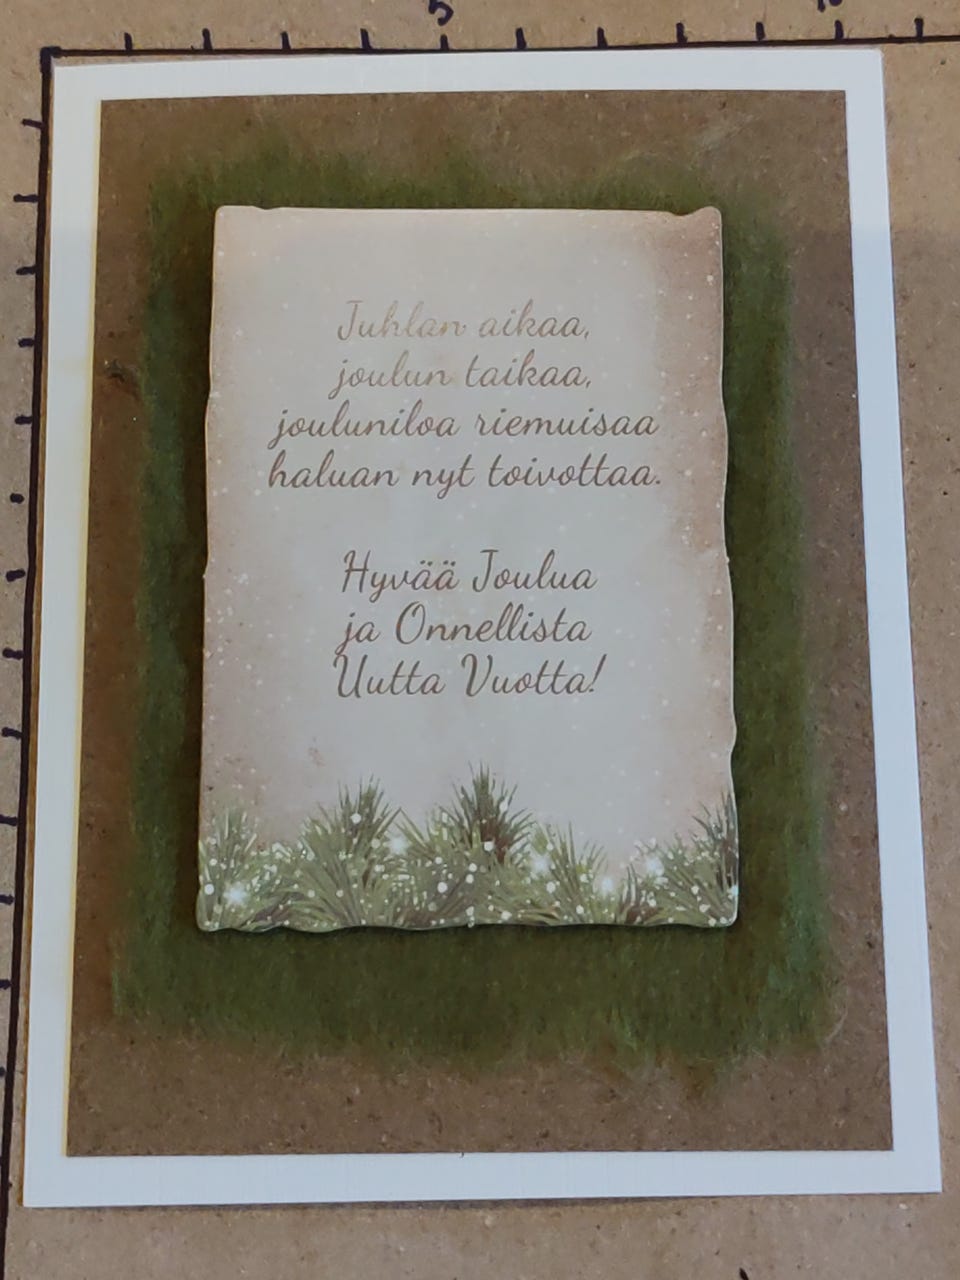 5
10
Juhlan aikaa,
joulun taikaa,
jouluniloa riemuisaa
haluan nyt toivottaa.
Hyvää Joulua
ja Onnellista
Uutta Vuotta!